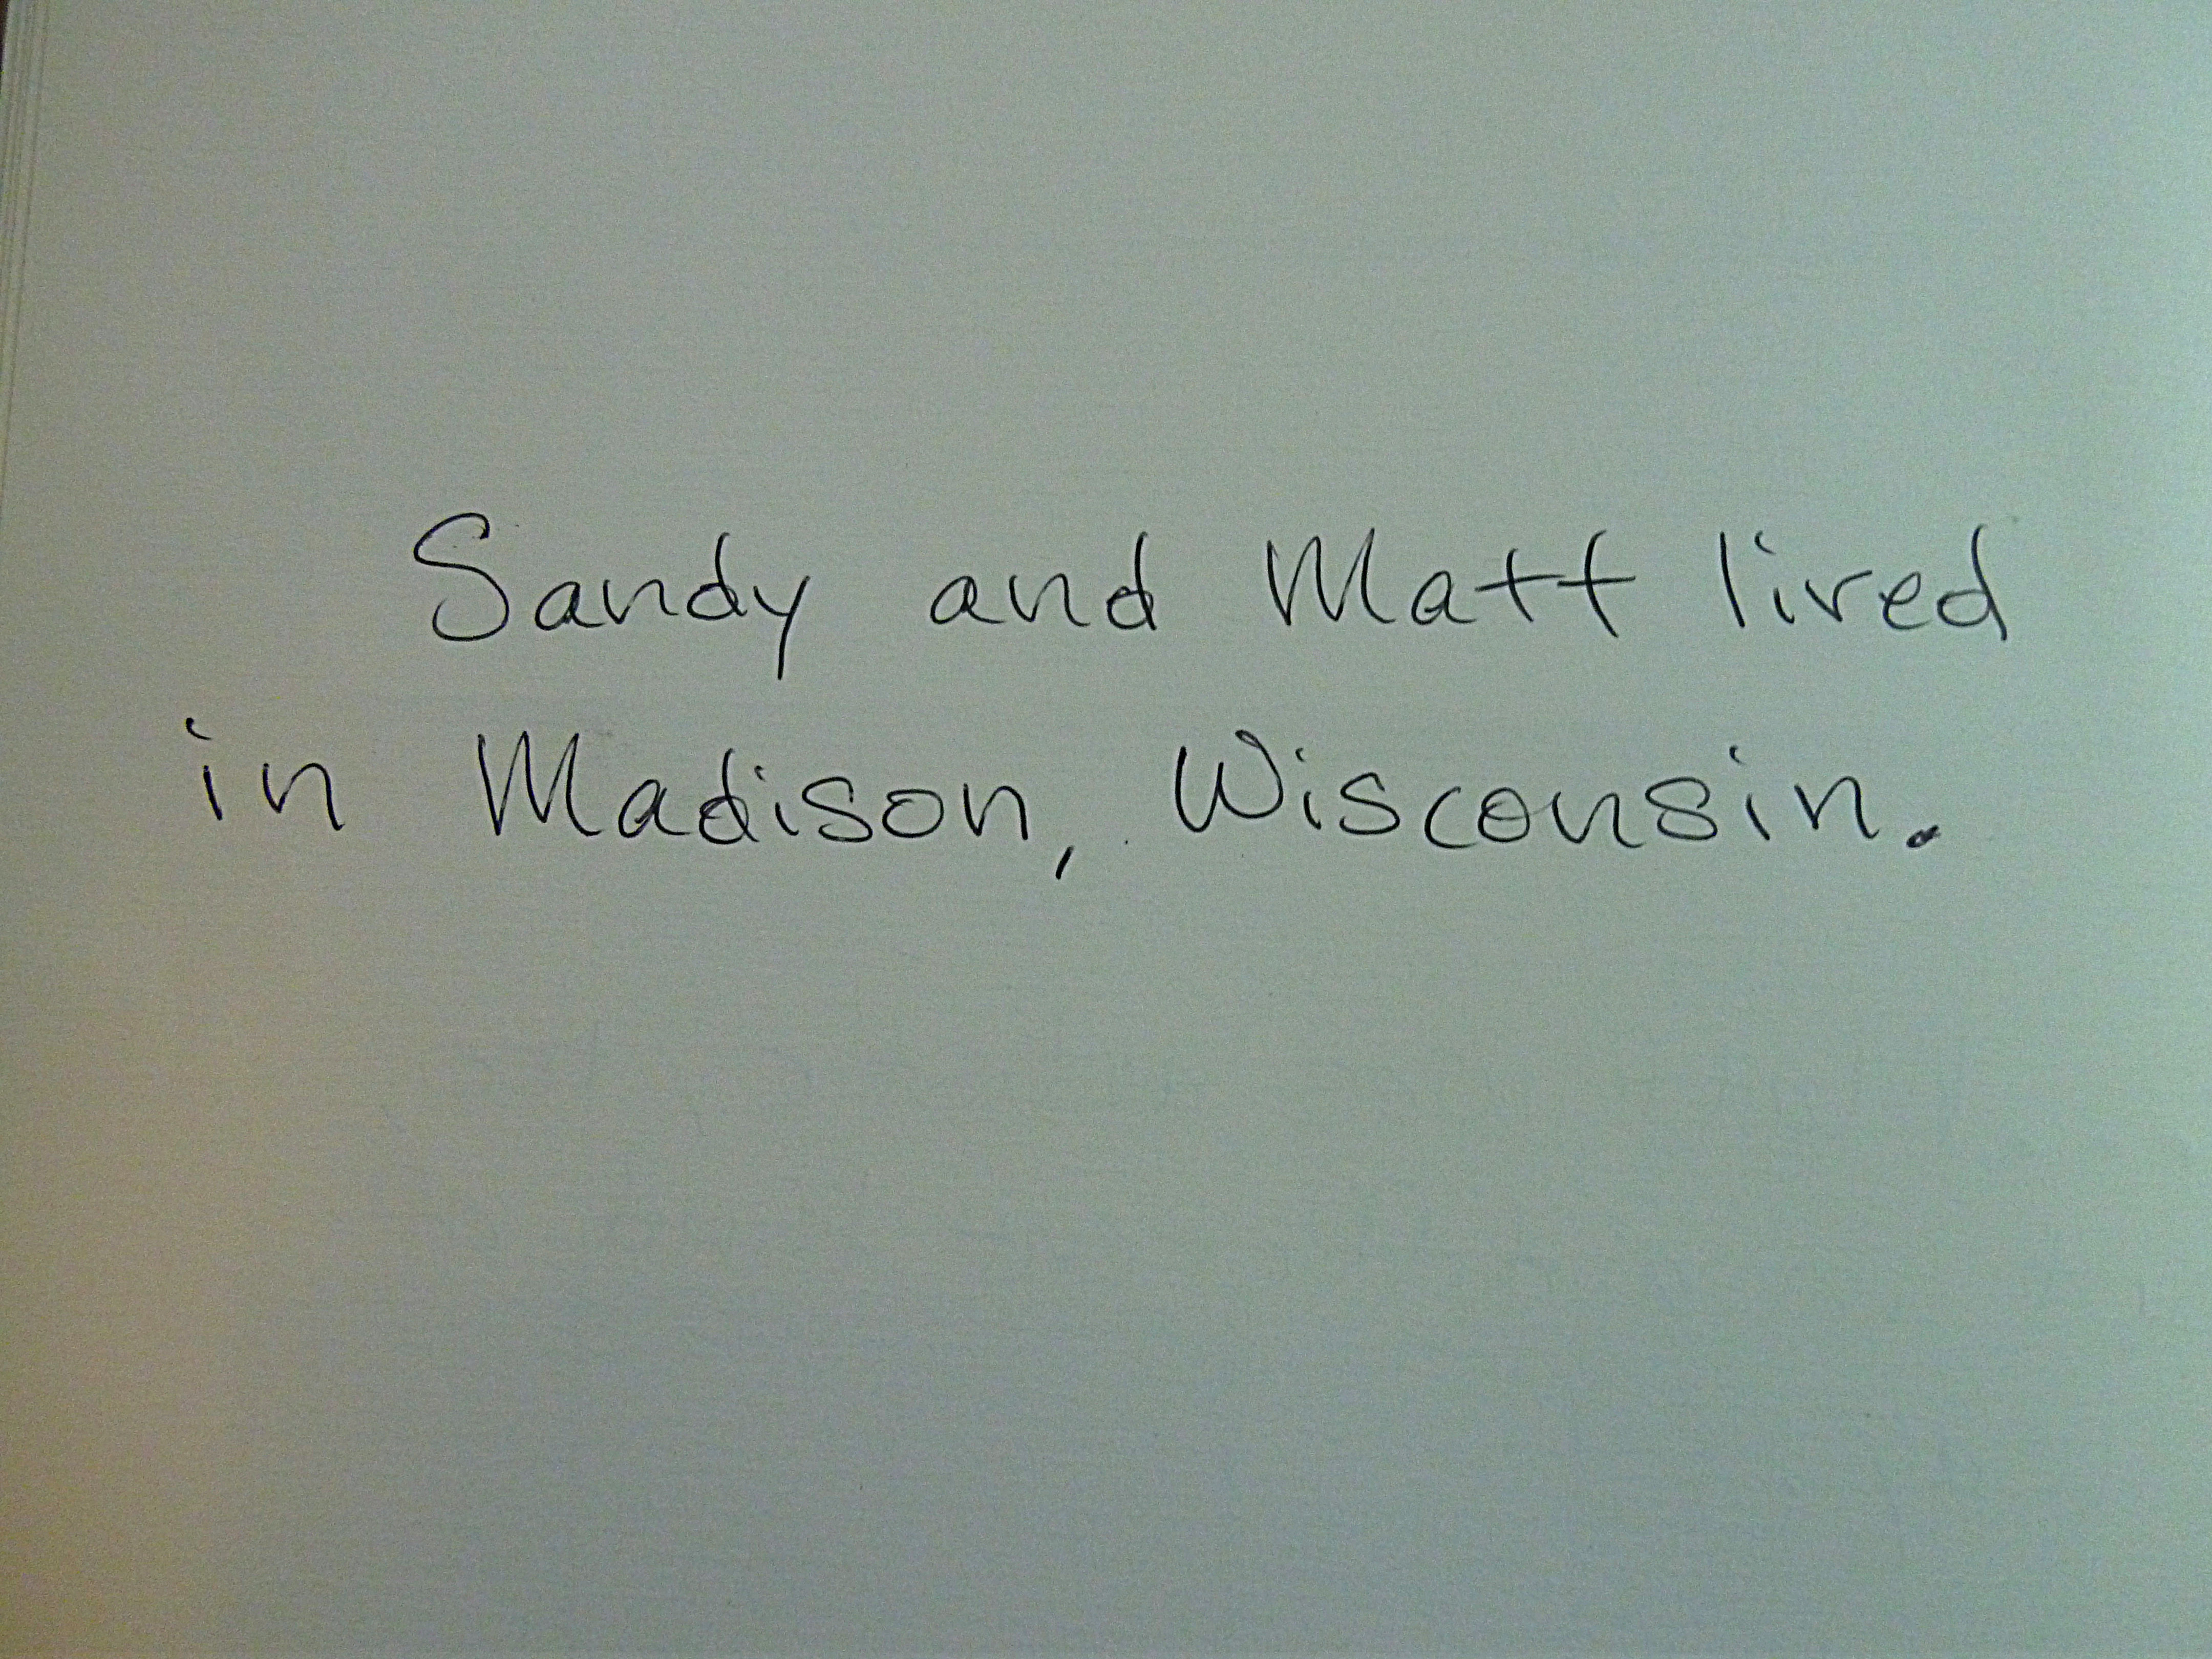 Sandy and Matt lived
in Madison, Wisconsin.